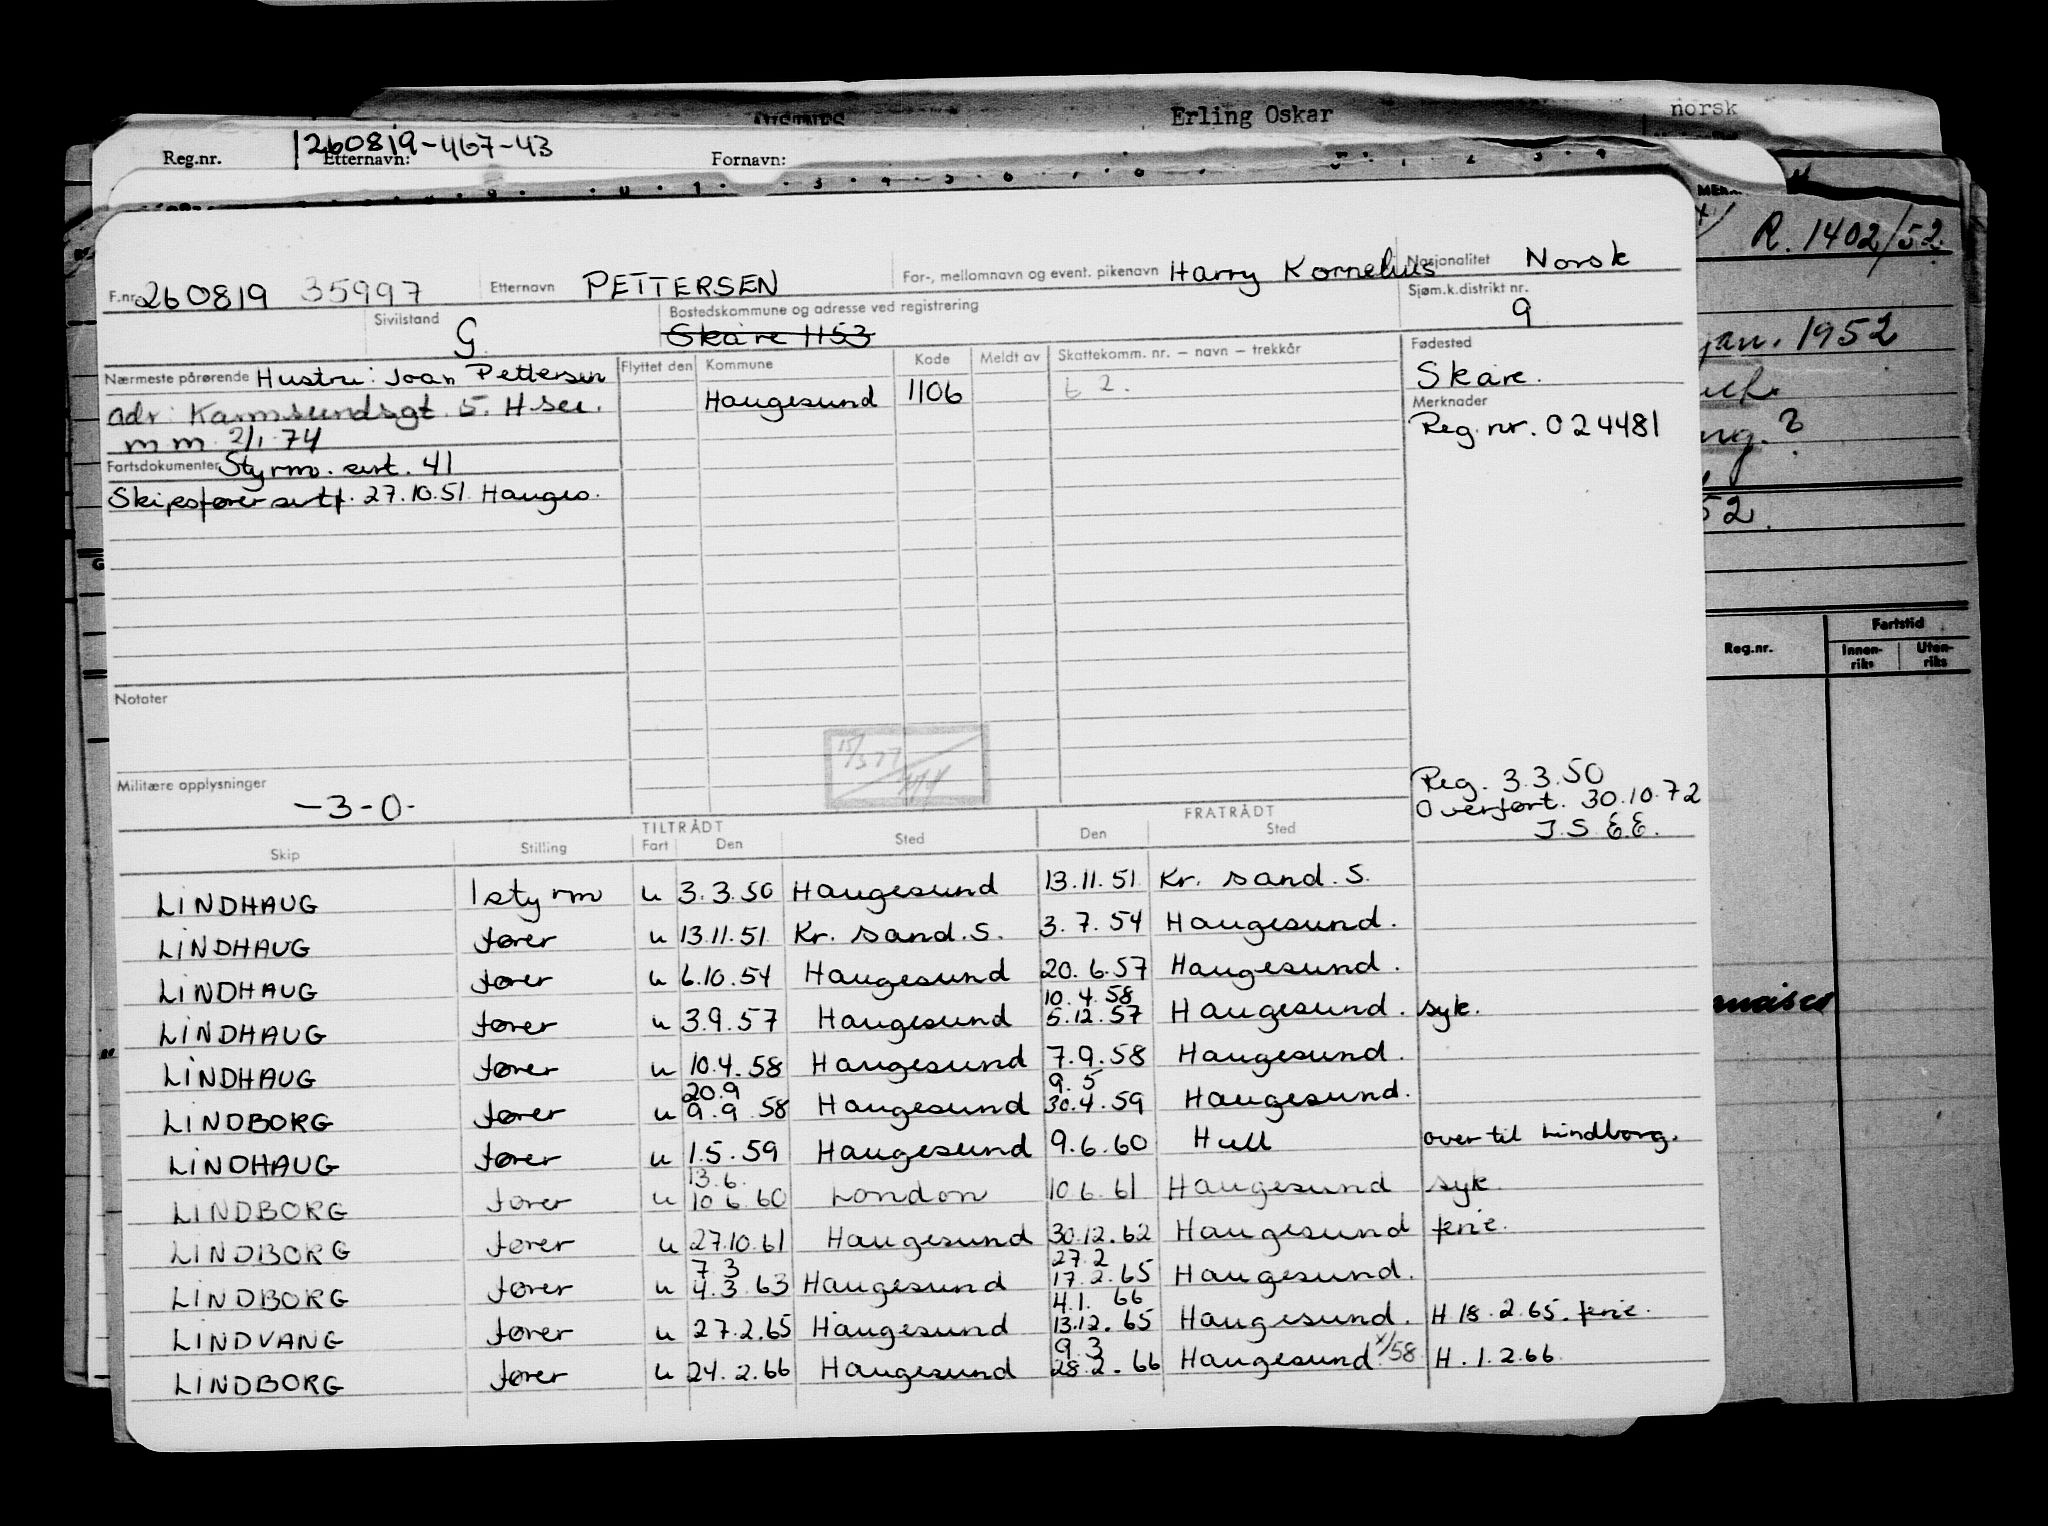 Erling Oskar norsk
Reg.nr. 260819-467-43 Etternavn: Fornavn:
R. 1402/52
F.nr. 260819 35997 Etternavn PETTERSEN For-, mellomnavn og event. pikenavn Harry Kornelius Nasjonalitet Norsk
Sivilstand G. Bostedskommune og adresse ved registrering Skåre 1153 Sjøm.k.distrikt nr. 9
jan. 1952
Nærmeste pårørende Hustru: Joan Pettersen Flyttet den Kommune Kode Meldt av Skattekomm. nr. – navn – trekkår Fødested
Skåre.
adr: Karmsundsgt 5. H. Haugesund 1106 t 2. Merknader
m m 2/1 74 Reg. nr. 024481
Fartsdokumenter Styrm. sert. 41
Skipsfører sertf. 27.10.51 Hauges.
52.
Fartstid
Reg.nr. Innen-riks Uten-riks
Notater
15/3 77
Militære opplysninger -3-0- Reg. 3.3.50
Overført. 30.10.72
J. S. E.E.
TILTRÅDT FRATRÅDT
Skip Stilling Fart Den Sted Den Sted
LINDHAUG 1 styrm u 3.3.50 Haugesund 13.11.51 Kr. sand. S.
LINDHAUG fører u 13.11.51 Kr. sand. S. 3.7.54 Haugesund.
LINDHAUG fører u 6.10.54 Haugesund 20.6.57 Haugesund.
10.4.58
LINDHAUG fører u 3.9.57 Haugesund 5.12.57 Haugesund. syk.
LINDHAUG fører u 10.4.58 Haugesund 7.9.58 Haugesund.
20.9 9.5
LINDBORG fører u 9.9.58 Haugesund 30.4.59 Haugesund.
LINDHAUG fører u 1.5.59 Haugesund 9.6.60 Hull over til Lindborg.
13.6.
LINDBORG fører u 10.6.60 London 10.6.61 Haugesund syk.
LINDBORG fører u 27.10.61 Haugesund 30.12.62 Haugesund ferie.
7 3 27 2
LINDBORG fører u 4.3.63 Haugesund 17.2.65 Haugesund.
4.1. 66
LINDVANG fører u 27.2.65 Haugesund 13.12.65 Haugesund. H 18.2.65. ferie.
9 3
LINDBORG fører u 24.2.66 Haugesund 28.2.66 Haugesund /58 H. 1.2.66